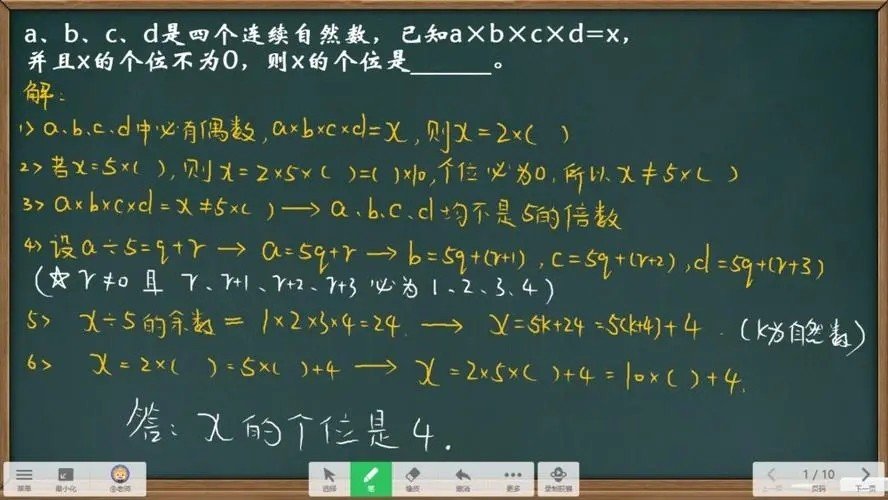 a、b、c、d是四个连续自然数，已知a×b×c×d=x，
并且x的个位不为0，则x的个位是______。
解：
1> a.b.c.d中必有偶数,a×b×c×d=x,则x=2×( )
2> 若x=5×( ),则x=2×5×( )=( )×10,个位必为0,所以x≠5×( )
3> a×b×c×d=x≠5×( )→a.b.c.d均不是5的倍数
4> 设a÷5=q+r→a=5q+r→b=5q+(r+1),c=5q+(r+2),d=5q+(r+3)
(☆r≠0且 r、r+1、r+2、r+3 必为1、2、3、4)
5> x÷5的余数=1×2×3×4=24.→x=5k+24=5(k+4)+4.(k为自然数)
6> x=2×( )=5×( )+4→x=2×5×( )+4=10×( )+4.
答：x的个位是4.
菜单 最小化 @老师 选择 笔 橡皮 撤消 更多 上一页 1/10 页码 下一页